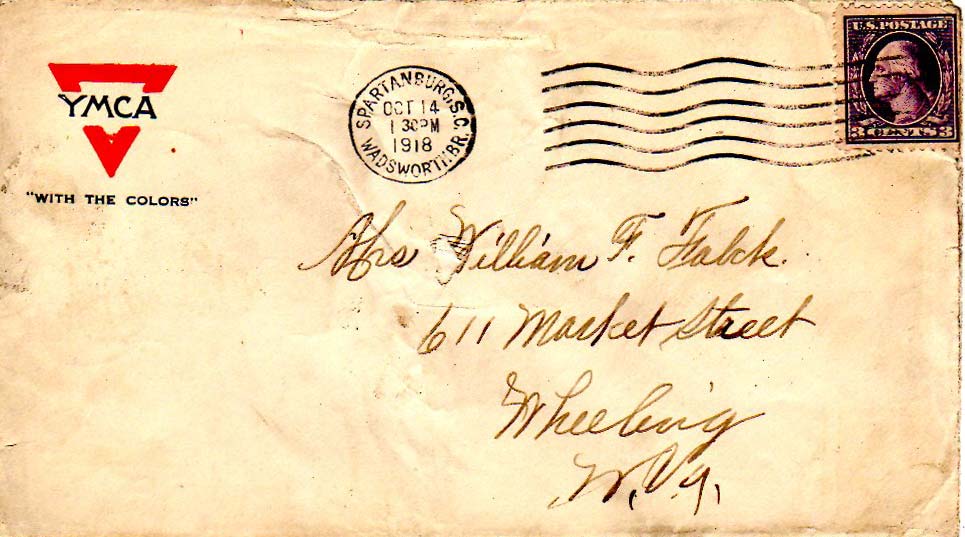 YMCA
"WITH THE COLORS"
SPARTANBURG, S.C.
OCT 14
1 30PM
1918
WADSWORTH BR.
U.S. POSTAGE
3 CENTS 3
Mrs William F. Falck.
611 Market Street
Wheeling
W. Va.